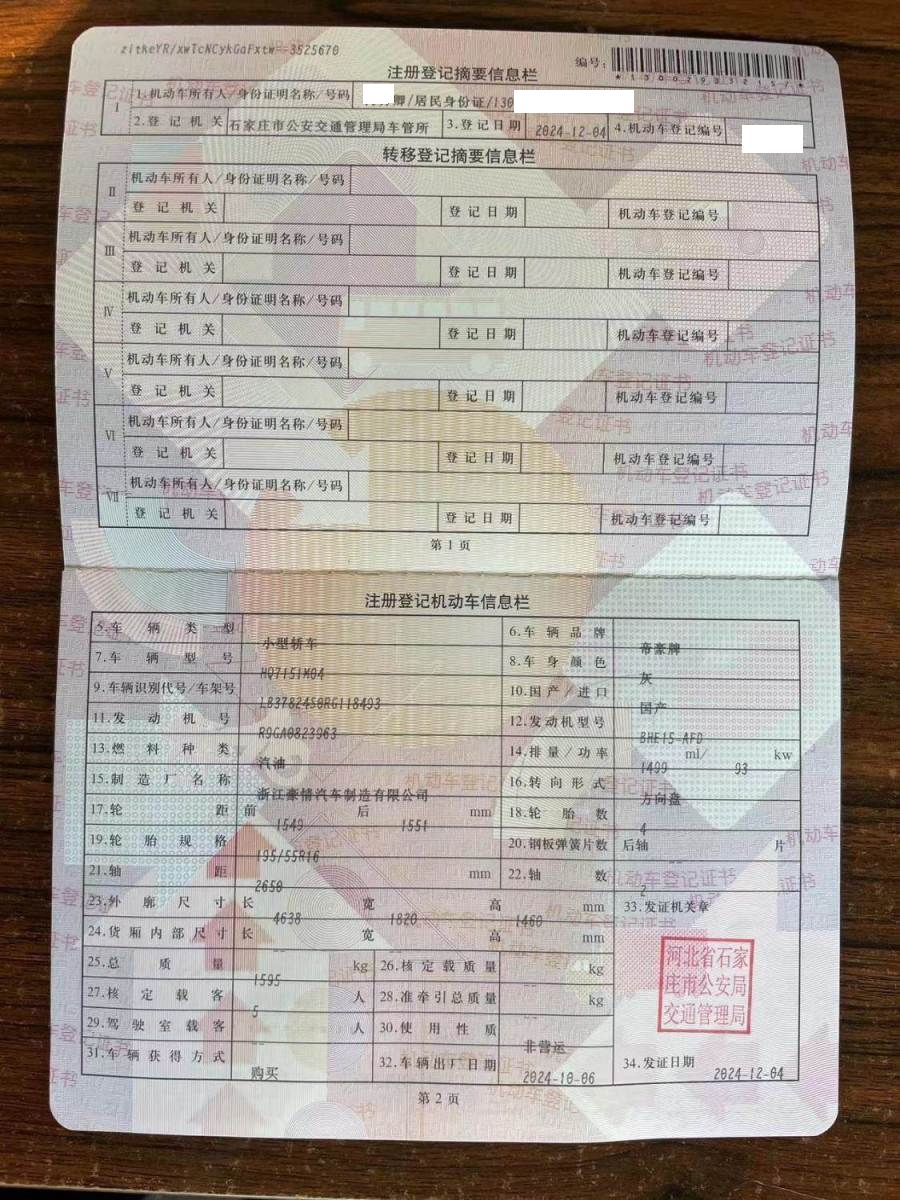 zitkeYR/xwTcNCykGaFxtw==3525670
编号:
注册登记摘要信息栏
I 1.机动车所有人/身份证明名称/号码 卿/居民身份证/130
2.登记机关 石家庄市公安交通管理局车管所 3.登记日期 2024-12-04 4.机动车登记编号
转移登记摘要信息栏
II 机动车所有人/身份证明名称/号码
登记机关 登记日期 机动车登记编号
III 机动车所有人/身份证明名称/号码
登记机关 登记日期 机动车登记编号
IV 机动车所有人/身份证明名称/号码
登记机关 登记日期 机动车登记编号
V 机动车所有人/身份证明名称/号码
登记机关 登记日期 机动车登记编号
VI 机动车所有人/身份证明名称/号码
登记机关 登记日期 机动车登记编号
VII 机动车所有人/身份证明名称/号码
登记机关 登记日期 机动车登记编号
第1页
注册登记机动车信息栏
5.车辆类型 小型轿车 6.车辆品牌 帝豪牌
7.车辆型号 HQ7151M04 8.车身颜色 灰
9.车辆识别代号/车架号 LB3782450RG118493 10.国产/进口 国产
11.发动机号 R9GA0823963 12.发动机型号 BHE15-AFD
13.燃料种类 汽油 14.排量/功率 1499 ml/ 93 kw
15.制造厂名称 浙江豪情汽车制造有限公司 16.转向形式 方向盘
17.轮距 前 1549 后 1551 mm 18.轮胎数 4
19.轮胎规格 195/55R16 20.钢板弹簧片数 后轴 -- 片
21.轴距 2650 mm 22.轴数 2
23.外廓尺寸 长 4638 宽 1820 高 1460 mm 33.发证机关章
24.货厢内部尺寸 长 -- 宽 -- 高 -- mm
25.总质量 1595 kg 26.核定载质量 -- kg
27.核定载客 5 人 28.准牵引总质量 -- kg
29.驾驶室载客 -- 人 30.使用性质 非营运
31.车辆获得方式 购买 32.车辆出厂日期 2024-10-06 34.发证日期 2024-12-04
河北省石家
庄市公安局
交通管理局
第2页